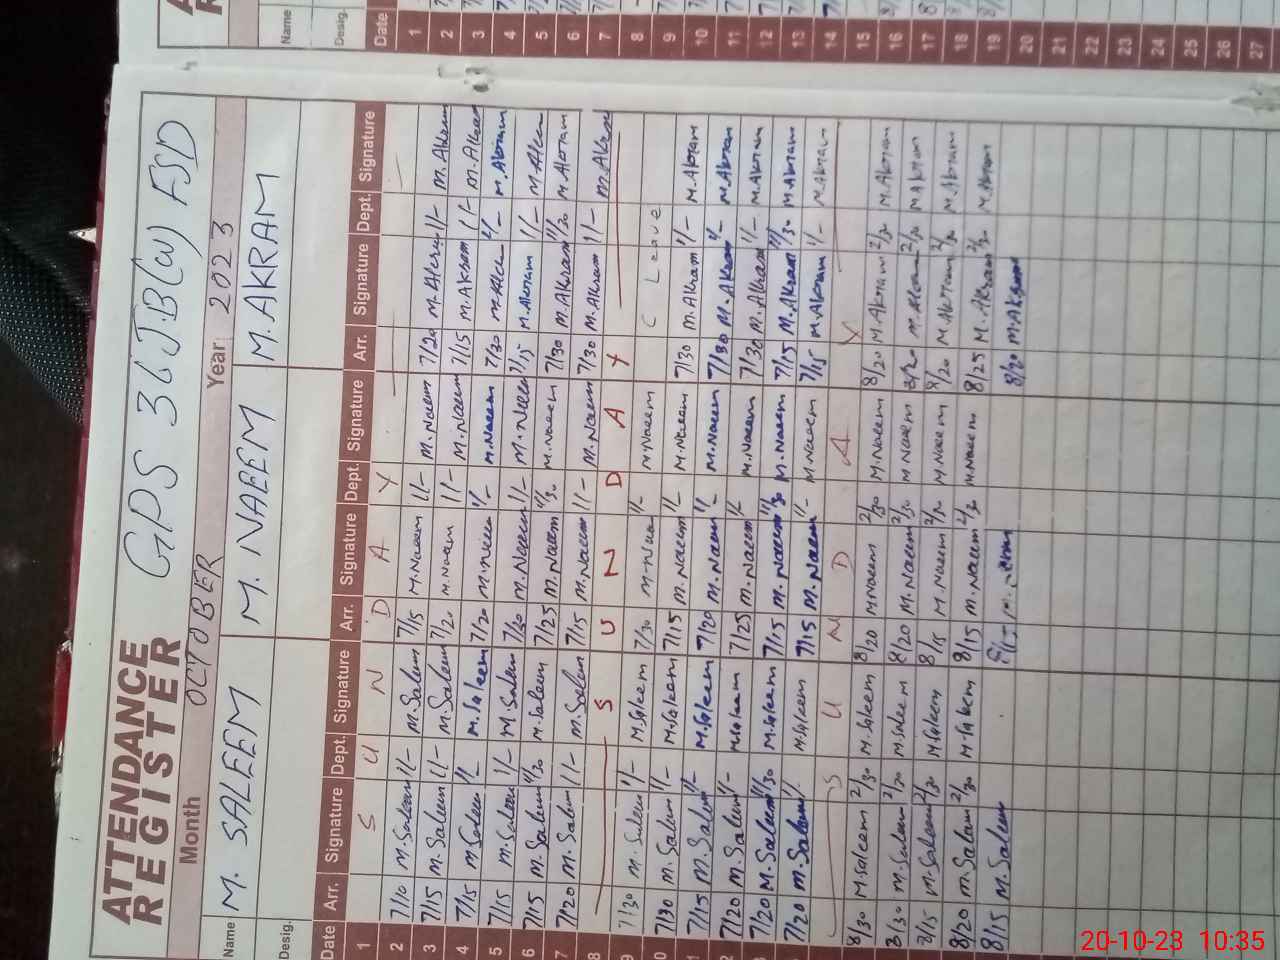 ATTENDANCE
REGISTER
GPS 36 JB(W) FSD
Month OCTOBER Year: 2023
Name M. SALEEM M. NAEEM M.AKRAM
Desig.
Date Arr. Signature Dept. Signature Arr. Signature Dept. Signature Arr. Signature Dept. Signature
1 S U N D A Y
2 7/10 M.Saleem 11/- M.Saleem 7/15 M.Naeem 11/- M.Naeem 7/20 M.Akram 11/- M.Akram
3 7/15 M.Saleem 11/- M.Saleem 7/20 M.Naeem 11/- M.Naeem 7/15 M.Akram 11/- M.Akram
4 7/15 M.Saleem 11/- M.Saleem 7/20 M.Naeem 11/- M.Naeem 7/30 M.Akram 11/- M.Akram
5 7/15 M.Saleem 11/- M.Saleem 7/20 M.Naeem 11/- M.Naeem 7/15 M.Akram 11/- M.Akram
6 7/15 M.Saleem 11/30 M.Saleem 7/25 M.Naeem 11/30 M.Naeem 7/30 M.Akram 11/30 M.Akram
7 7/20 M.Saleem 11/- M.Saleem 7/15 M.Naeem 11/- M.Naeem 7/30 M.Akram 11/- M.Akram
8 S U N D A Y
9 7/30 M.Saleem 11/- M.Saleem 7/30 M.Naeem 11/- M.Naeem C Leave
10 7/30 M.Saleem 11/- M.Saleem 7/15 M.Naeem 11/- M.Naeem 7/30 M.Akram 11/- M.Akram
11 7/15 M.Saleem 11/- M.Saleem 7/20 M.Naeem 11/- M.Naeem 7/30 M.Akram 11/- M.Akram
12 7/20 M.Saleem 11/- M.Saleem 7/25 M.Naeem 11/- M.Naeem 7/30 M.Akram 11/- M.Akram
7/20 M.Saleem 11/30 M.Saleem 7/15 M.Naeem 11/30 M.Naeem 7/15 M.Akram 11/30 M.Akram
7/20 M.Saleem 11/- M.Saleem 7/15 M.Naeem 11/- M.Naeem 7/15 M.Akram 11/- M.Akram
S U N D A Y
8/30 M.Saleem 2/30 M.Saleem 8/20 M.Naeem 2/30 M.Naeem 8/20 M.Akram 2/30 M.Akram
8/30 M.Saleem 2/30 M.Saleem 8/20 M.Naeem 2/30 M.Naeem 8/20 M.Akram 2/30 M.Akram
8/15 M.Saleem 2/30 M.Saleem 8/15 M.Naeem 2/30 M.Naeem 8/20 M.Akram 2/30 M.Akram
8/20 M.Saleem 2/30 M.Saleem 8/15 M.Naeem 2/30 M.Naeem 8/25 M.Akram 2/30 M.Akram
8/15 M.Saleem 8/20 M.Akram
Name
Desig.
Date
1
2
3
4
5
6
7
8
9
10
11
12
13
14
15
16
17
18
19
20
21
22
23
24
25
26
27
20-10-23 10:35